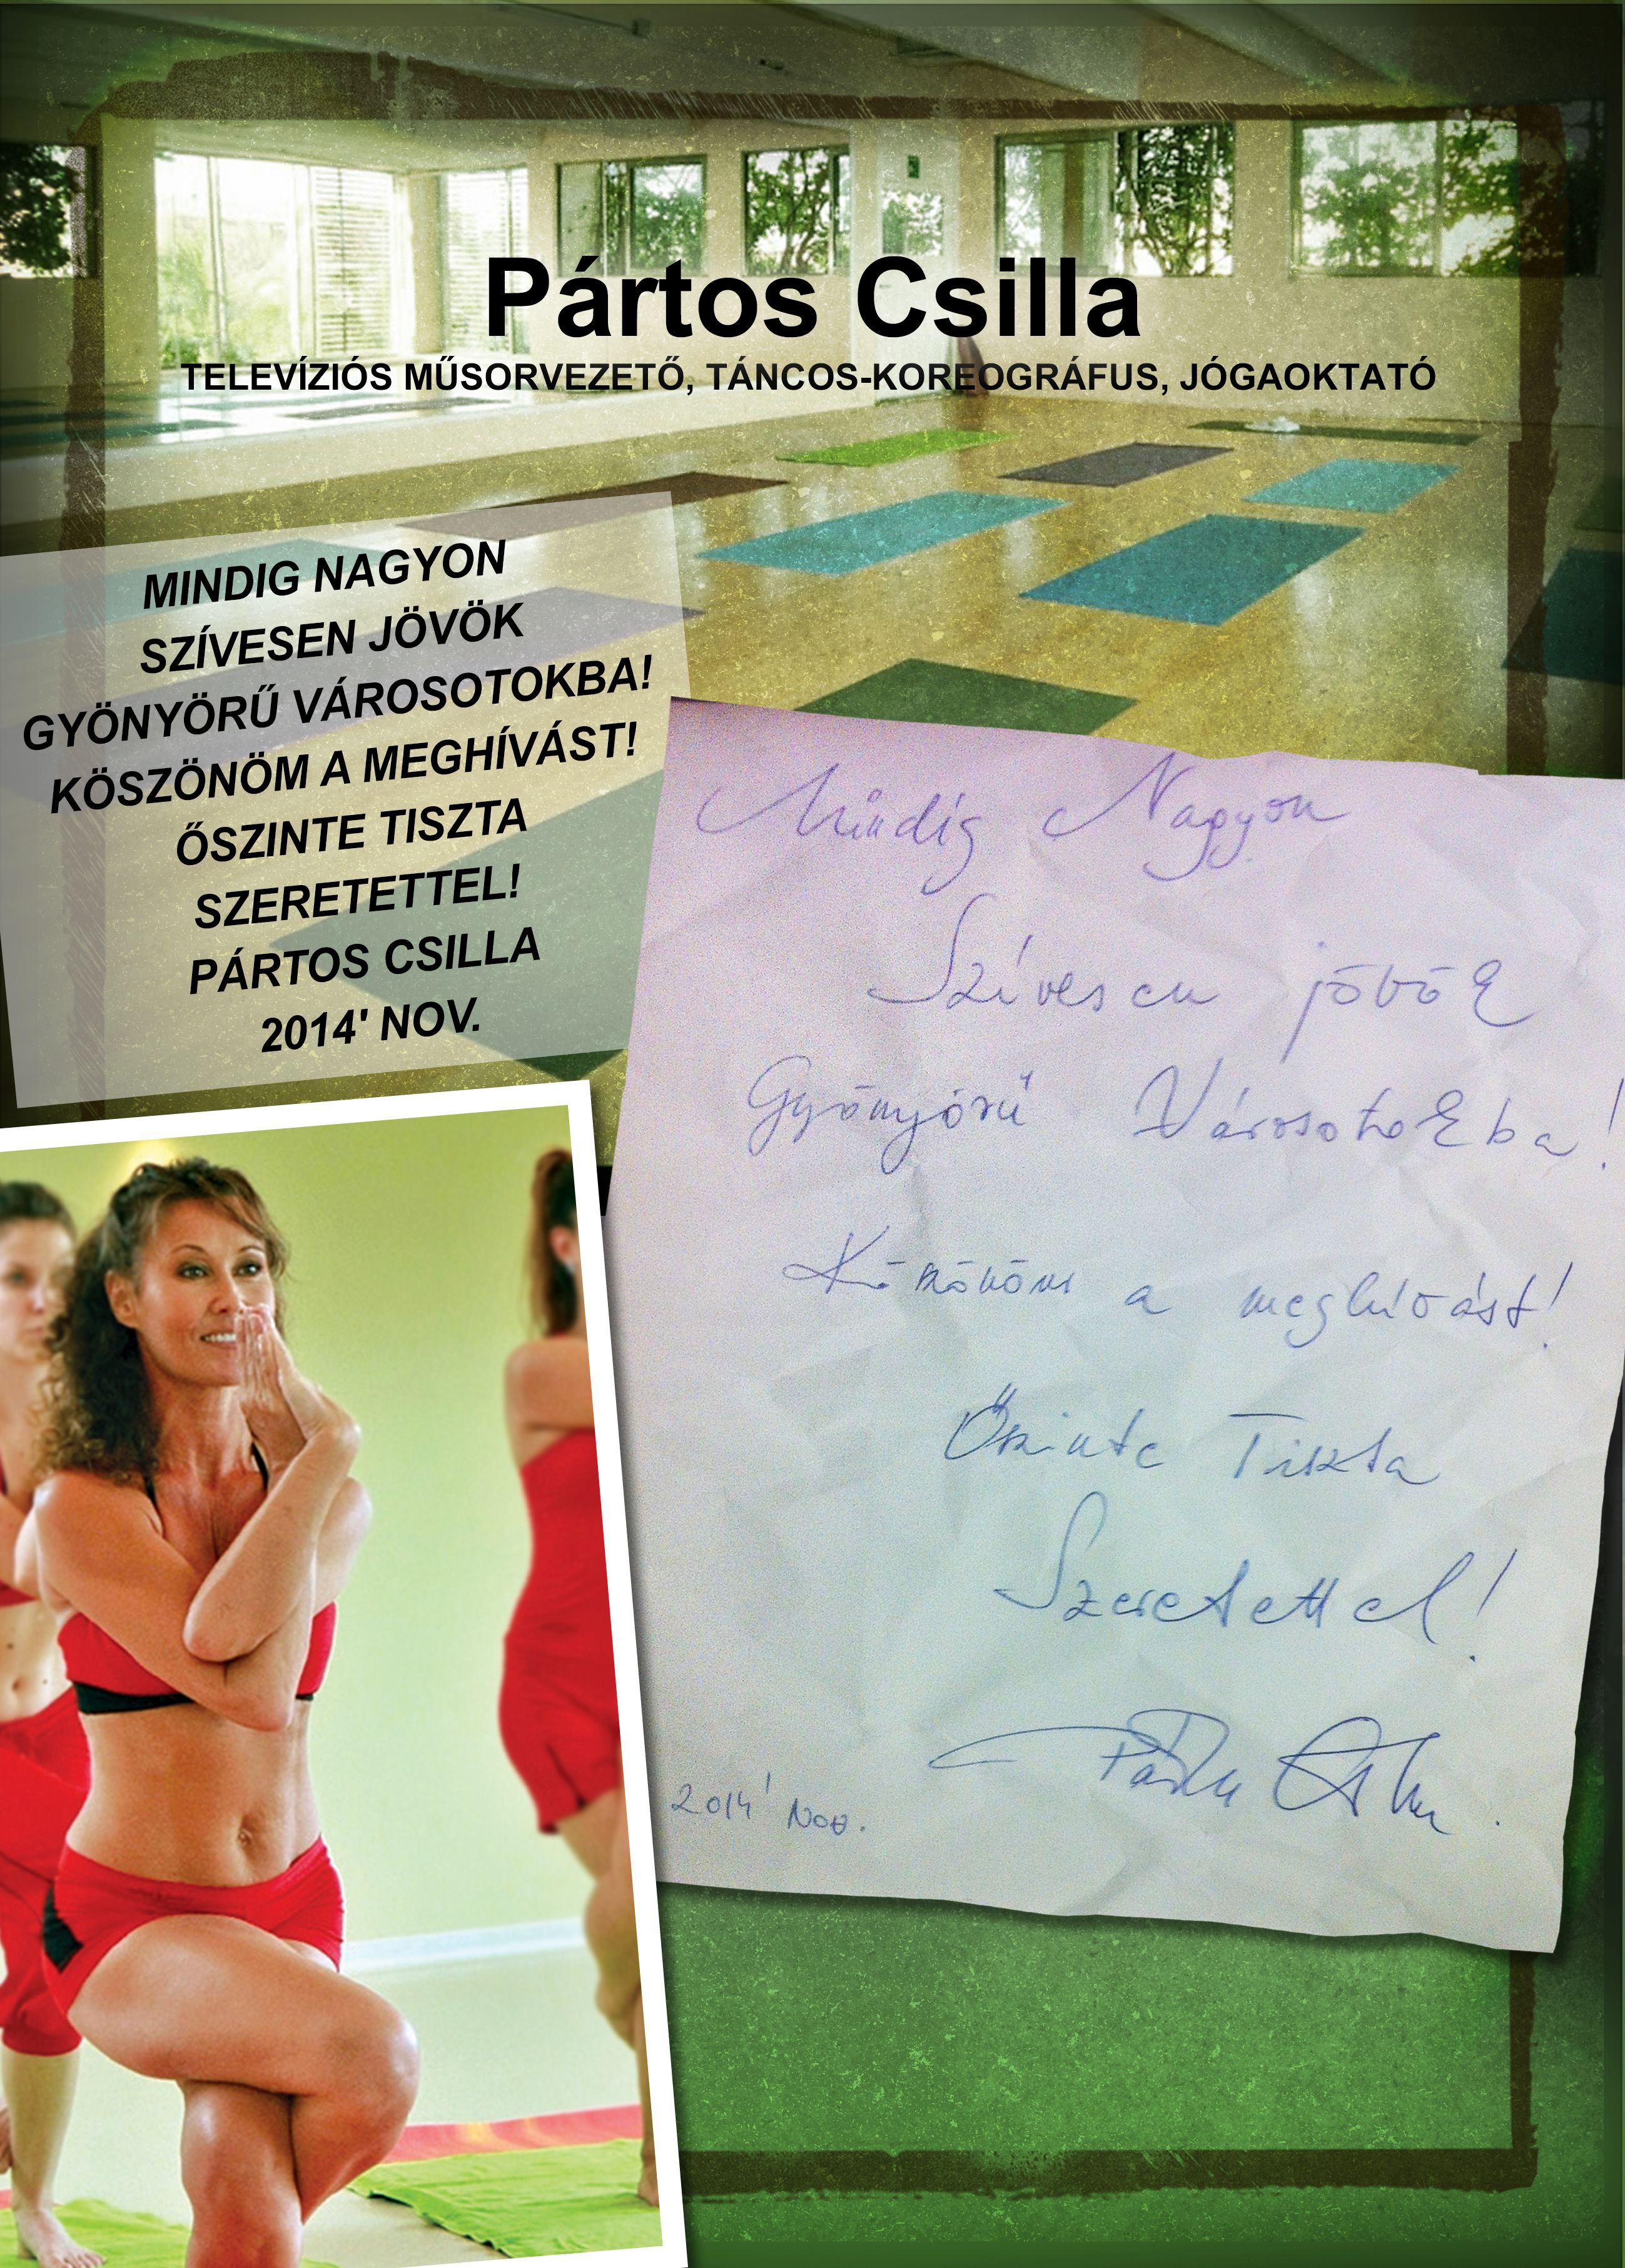 Pártos Csilla
TELEVÍZIÓS MŰSORVEZETŐ, TÁNCOS-KOREOGRÁFUS, JÓGAOKTATÓ
MINDIG NAGYON
SZÍVESEN JÖVÖK
GYÖNYÖRŰ VÁROSOTOKBA!
KÖSZÖNÖM A MEGHÍVÁST!
ŐSZINTE TISZTA
SZERETETTEL!
PÁRTOS CSILLA
2014' NOV.
Mindig Nagyon
Szívesen jövök
Gyönyörű Városotokba!
Köszönöm a meghívást!
Őszinte Tiszta
Szeretettel!
Pártos Csilla
2014' Nov.